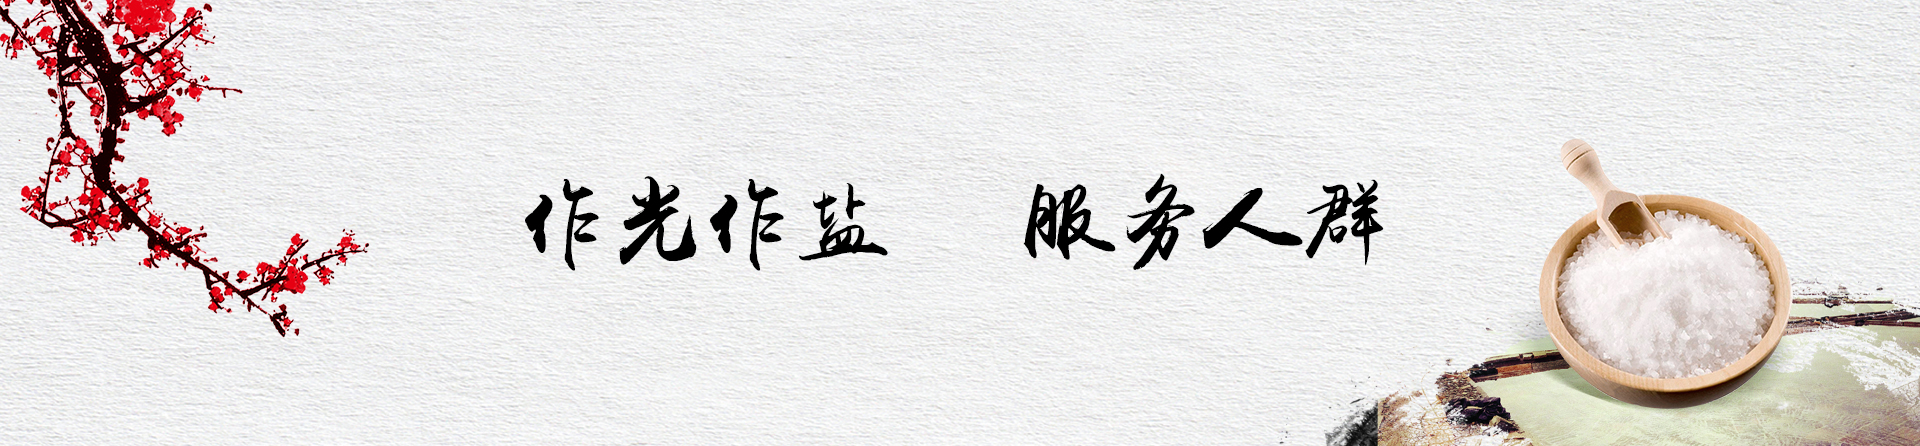 作光作盐 服务人群